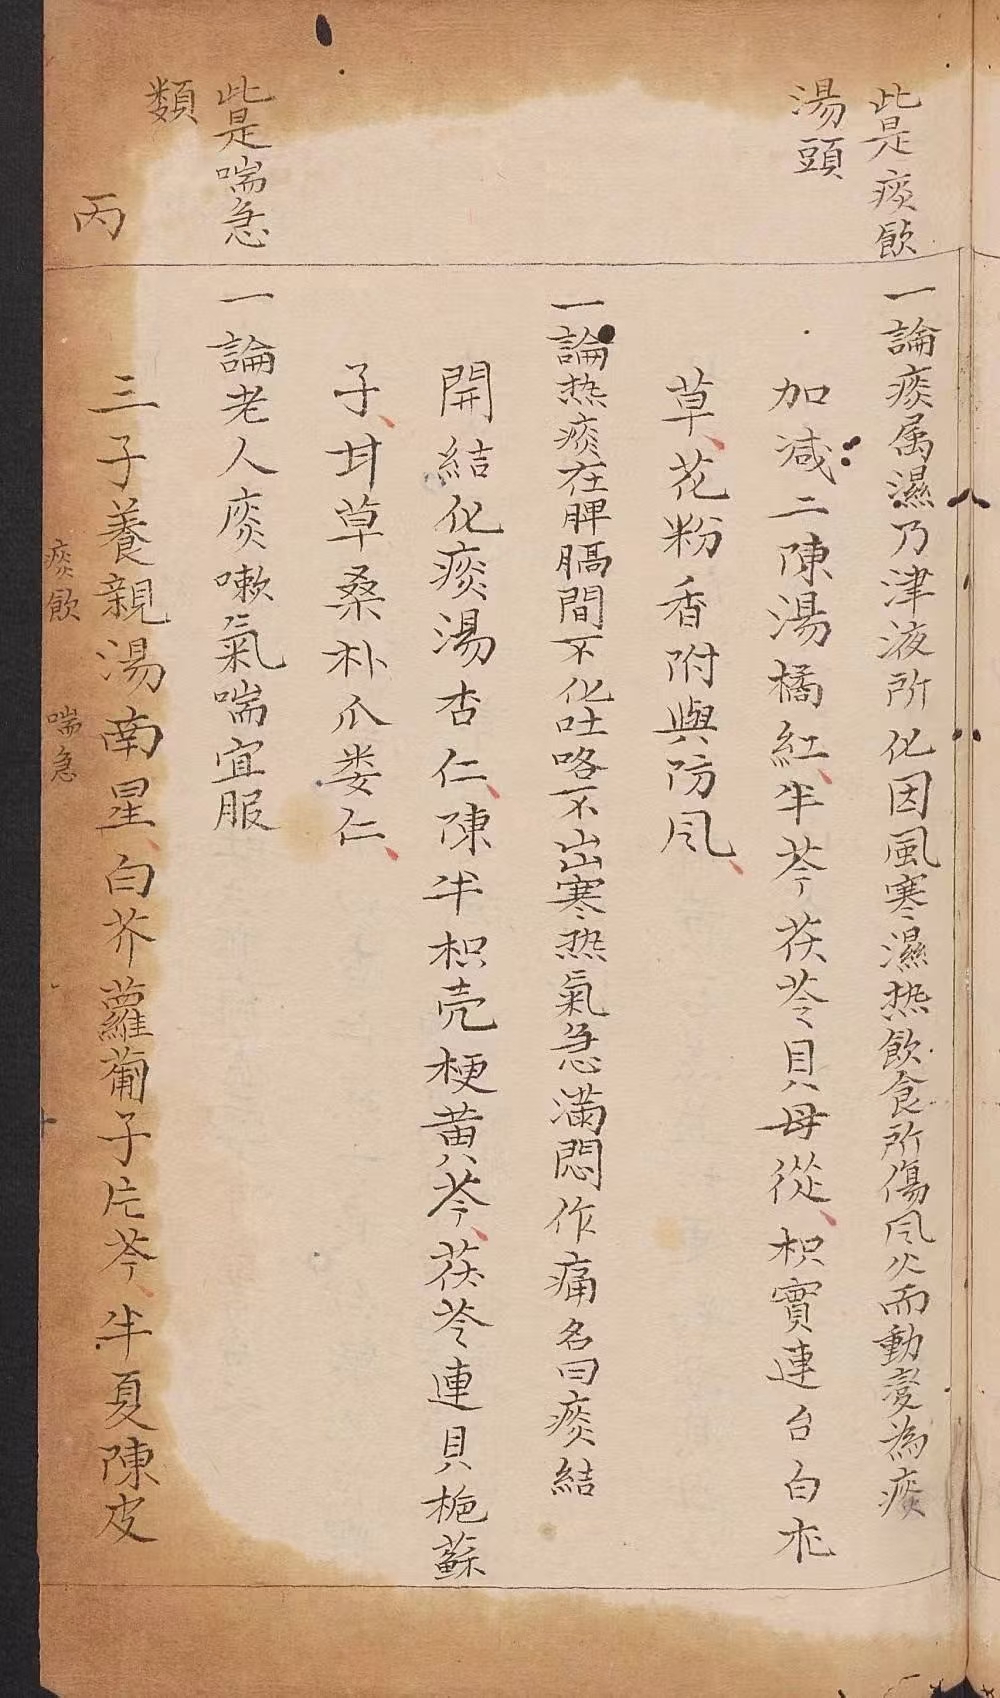 此是痰飲
湯頭
一論痰属濕乃津液所化因風寒濕热飲食所傷风火而動變為痰
加减二陳湯橘紅半芩茯苓貝母從枳實連台白朮
草花粉香附與防风
一論热痰在脾膈間不化吐咯不出寒热氣急滿悶作痛名曰痰結
開結化痰湯杏仁陳半枳壳梗黄芩茯苓連貝栀蘇
子甘草桑朴爪娄仁
此是喘急
類
一論老人痰嗽氣喘宜服
丙
三子養親湯南星白芥蘿蔔子片芩半夏陳皮
痰飲 喘急